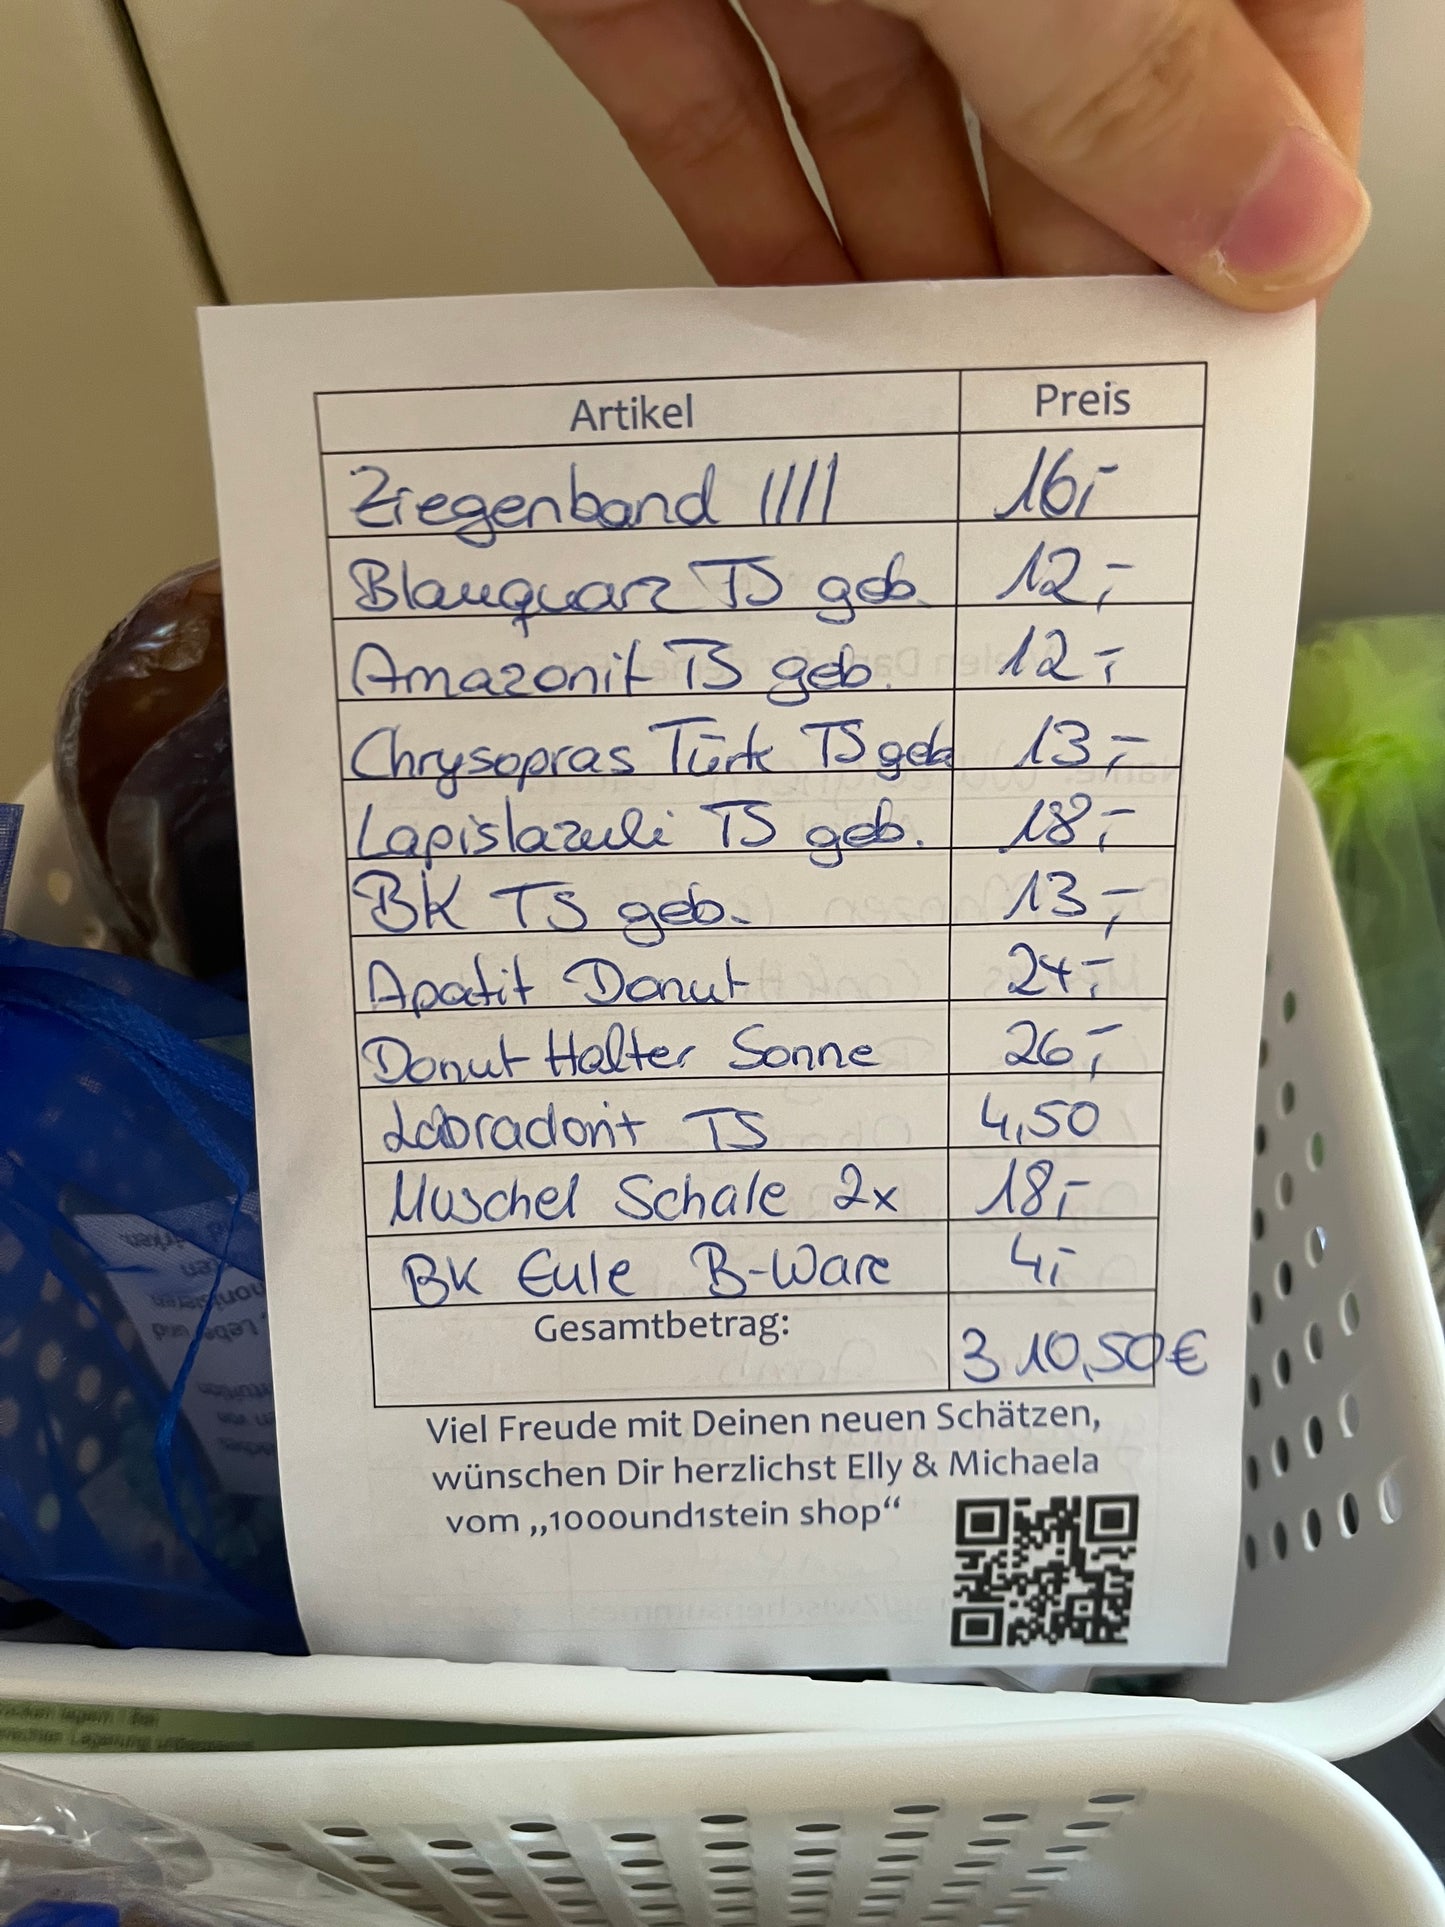 Artikel Preis
Ziegenband |||| 16,-
Blauquarz TS geb. 12,-
Amazonit TS geb. 12,-
Chrysopras Türk TS geb 13,-
Lapislazuli TS geb. 18,-
BK TS geb. 13,-
Apatit Donut 24,-
Donut Halter Sonne 26,-
Labradorit TS 4,50
Muschel Schale 2x 18,-
BK Eule B-Ware 4,-
Gesamtbetrag: 310,50€
Viel Freude mit Deinen neuen Schätzen,
wünschen Dir herzlichst Elly & Michaela
vom „1000und1stein shop“